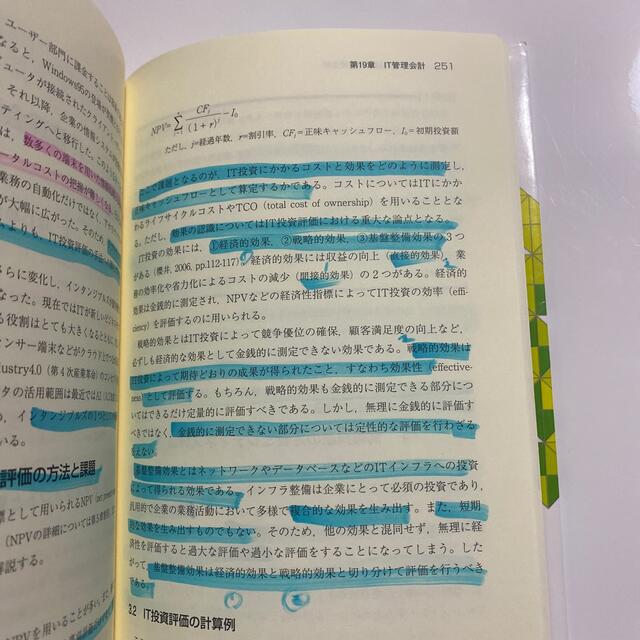 ユーザー部門に課金すること
なると、Windows95の
ュータが接続されたクライアン
それ以降、企業の情報
ティングへと移行した。この
は、数多くの端末を用い
ータルコストの把握が難し
業務の自動化だけではなく、ア
が大幅に広がった。そのため
よりも、IT投資評価の
さらに変化し、インタンジブルズの
なった。現在ではITが新しいビジ
る役割はとても大きくなるととも
センサー端末などがクラウド上で
dustry4.0（第4次産業革命）の
タの活用範囲は最近ではAI
め、インタンジブルズの1つとし
いる。
評価の方法と課題
標として用いられるNPV (net present
（NPVの詳細については第5章
解説する。
NPVを用いることが多い。また、
第19章　IT管理会計　251
NPV=∑ CFj/(1+r)^j −I₀
ただし、j=経過年数、r=割引率、CFj=正味キャッシュフロー、I₀=初期投資額
ここで課題となるのが、IT投資にかかるコストと効果をどのように測定し、
正味キャッシュフローとして算定するかである。コストについてはITにかか
わるライフサイクルコストやTCO（total cost of ownership）を用いることとな
る。ただし、効果の認識についてはIT投資評価における重大な論点となる。
IT投資の効果には、①経済的効果、②戦略的効果、③基盤整備効果の3つ
がある（櫻井, 2006, pp.112-117）。経済的効果には収益の向上（直接的効果）、業
務の効率化や省力化によるコストの減少（間接的効果）の2つがある。経済的
効果は金銭的に測定され、NPVなどの経済性指標によってIT投資の効率（effi-
ciency）を評価するのに用いられる。
戦略的効果とはIT投資によって競争優位の確保、顧客満足度の向上など、
必ずしも経済的な効果として金銭的に測定できない効果である。戦略的効果は
IT投資によって期待どおりの成果が得られたこと、すなわち効果性（effective-
ness）として評価する。もちろん、戦略的効果も金銭的に測定できる部分につ
いてはできるだけ定量的に評価すべきである。しかし、無理に金銭的に評価す
べきではなく、金銭的に測定できない部分については定性的な評価を行わざる
をえない。
基盤整備効果とはネットワークやデータベースなどのITインフラへの投資
によって得られる効果である。インフラ整備は企業にとって必須の投資であり、
汎用的で企業の業務活動において多様で複合的な効果を生み出す。また、短期
的な効果を生み出すものでもない。そのため、他の効果と混同せず、無理に経
済性を評価すると過大な評価や過小な評価をすることになってしまう。した
がって、基盤整備効果は経済的効果と戦略的効果と切り分けて評価を行うべき
である。
3.2　IT投資評価の計算例